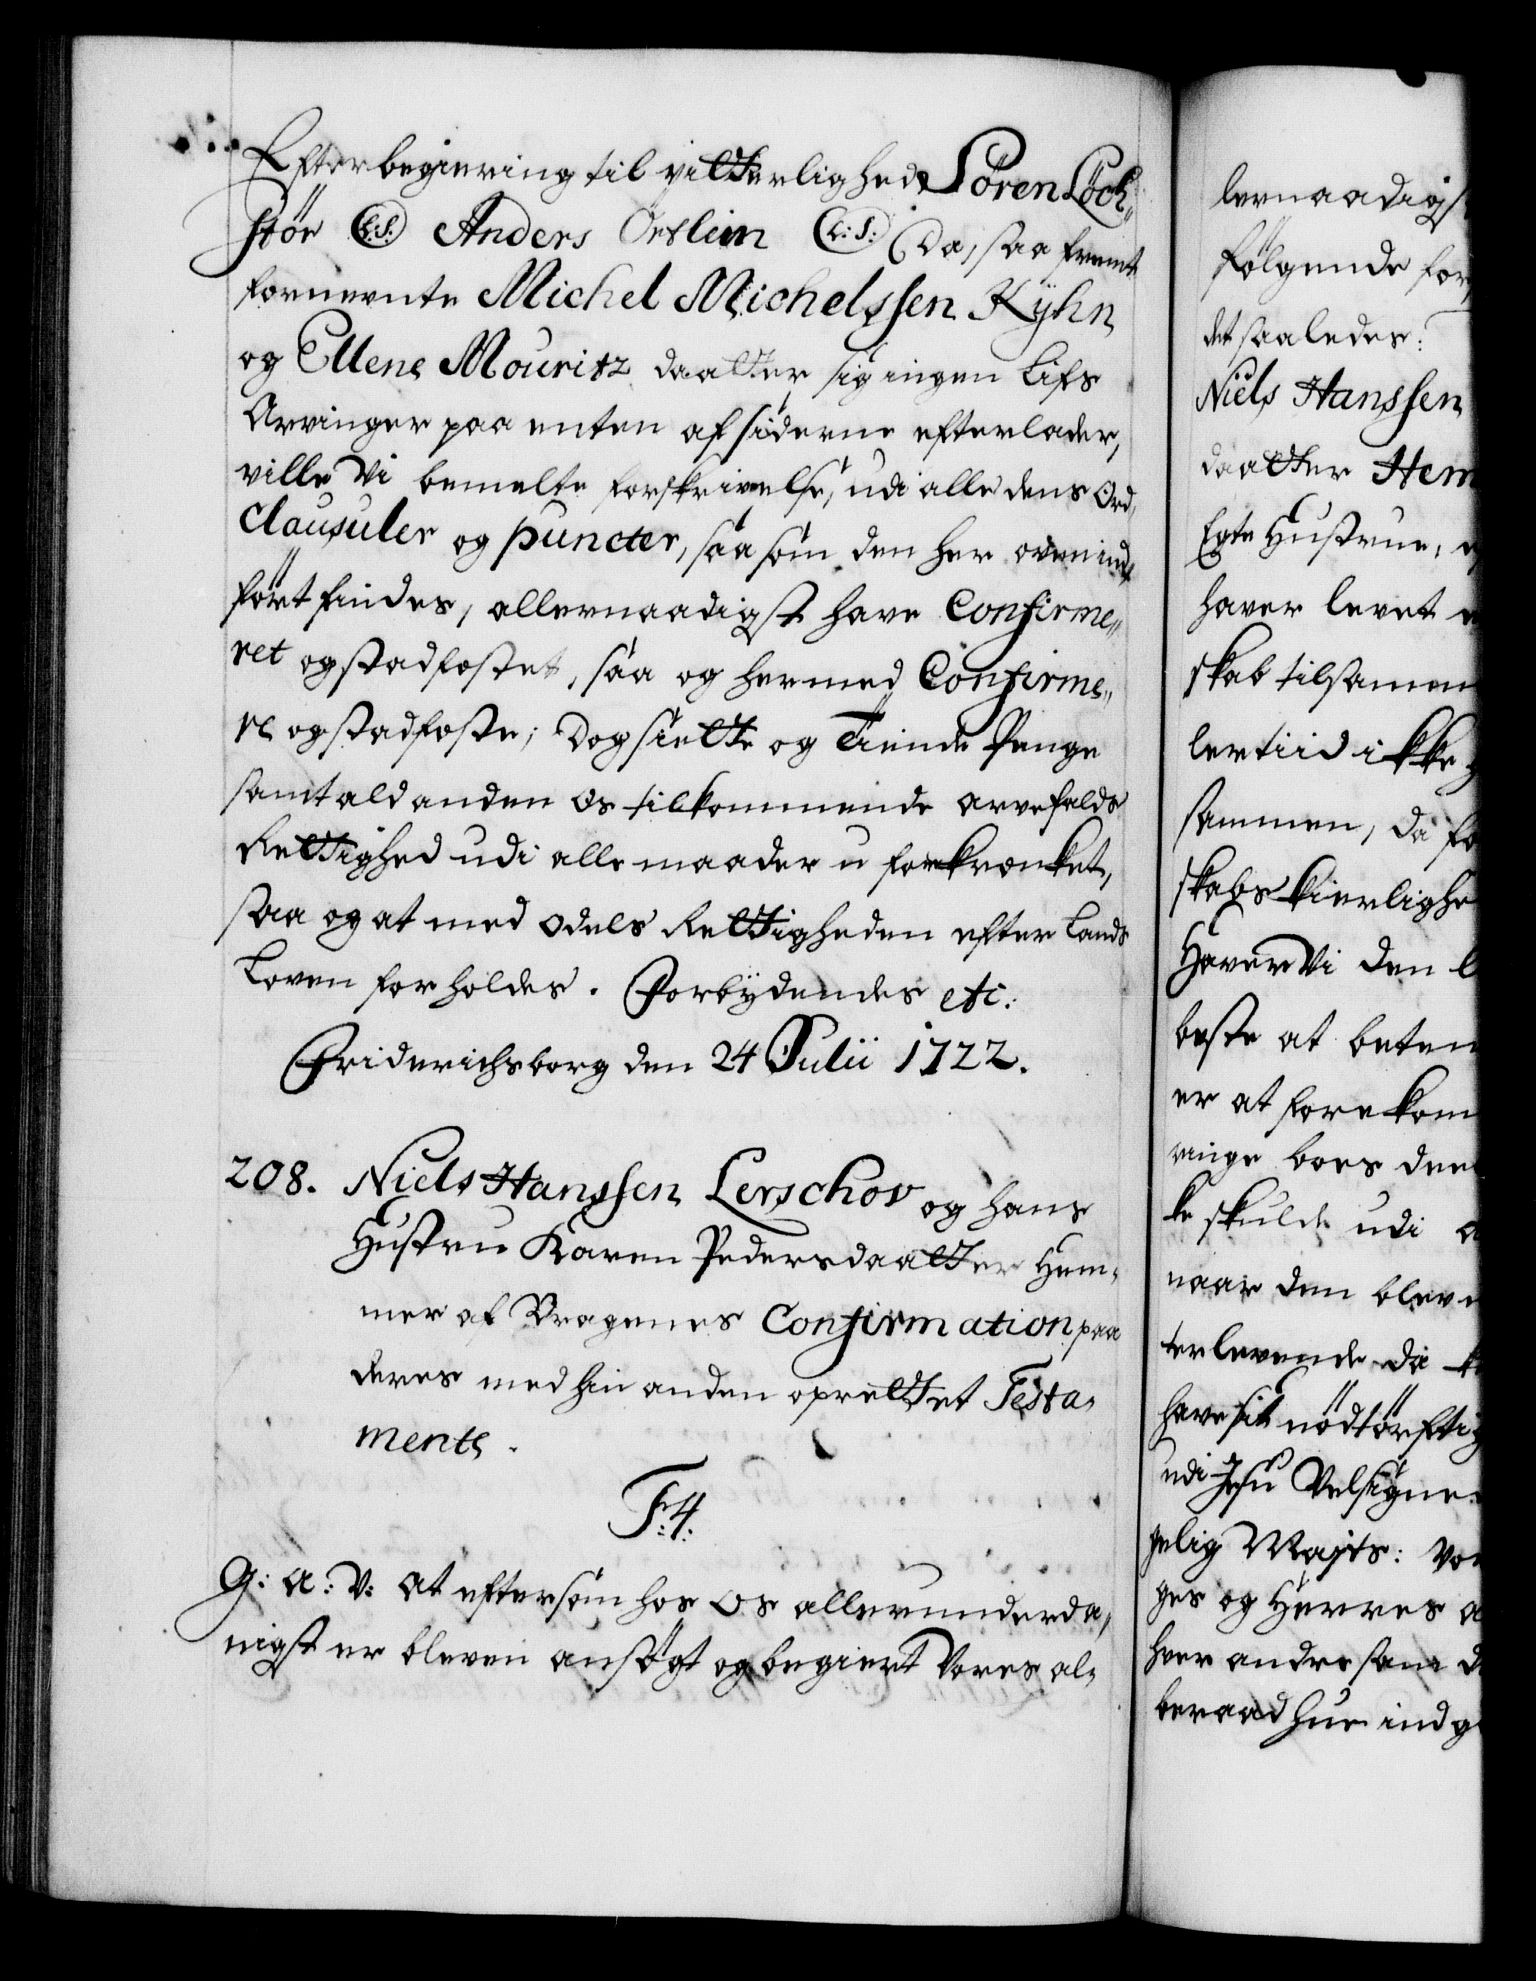 Efter begiering til vitterlighed, Sören Löch„
stör (L:S:) Anders Örtlein (L:S:) Da, saa fremt
fornevnte Michel Michelssen Kyhn
og Ellene Mouritz daatter sig ingen Lifs
Arvinger paa enten af siderne efterlader,
ville Vi bemelte forskrivelse, udi alle dens Ord,
Clausuler og puncter, saa som den her oven ind„
fört findes, allernaadigst have Confirme„
ret og stadfestet, saa og hermed Confirme„
re og stadfeste; Dog siette og Tiende Penge
samt ald anden Os tilkommende arvefalds
Rettighed udi alle maader u forkrenket,
saa og at med Odels Rettigheden efter Lands
Loven forholdes. Forbydendes etc:
Friderichsborg den 24 Julii 1722.
208. Niels Hanssen Lerschov og hans
Hustru Karen Pedersdaatter Hem„
mer af Bragenes Confirmation paa
deres med hin anden oprettet Testa„
mente.
F:4:
G: A: V: At eftersom hos Os allerunderda„
nigst er bleven ansögt og begiert Vores al„
lernaadigst
fölgende for
det saaledes:
Niels Hanssen
daatter Hem
Egte Hustrue,
haver levet
skab tilsamen
lertiid ikke
sammen, da
skabs Kierlighe
Haver Vi den
beste at beten
er at forekom
ringe boes
ke skulde udi
naar den bleve
terlevende da
have sit nödtörftig
udi Jesu Velsigne
gelig Majts: Vor
ges og Herres
hver andre sam
beraad hue indg